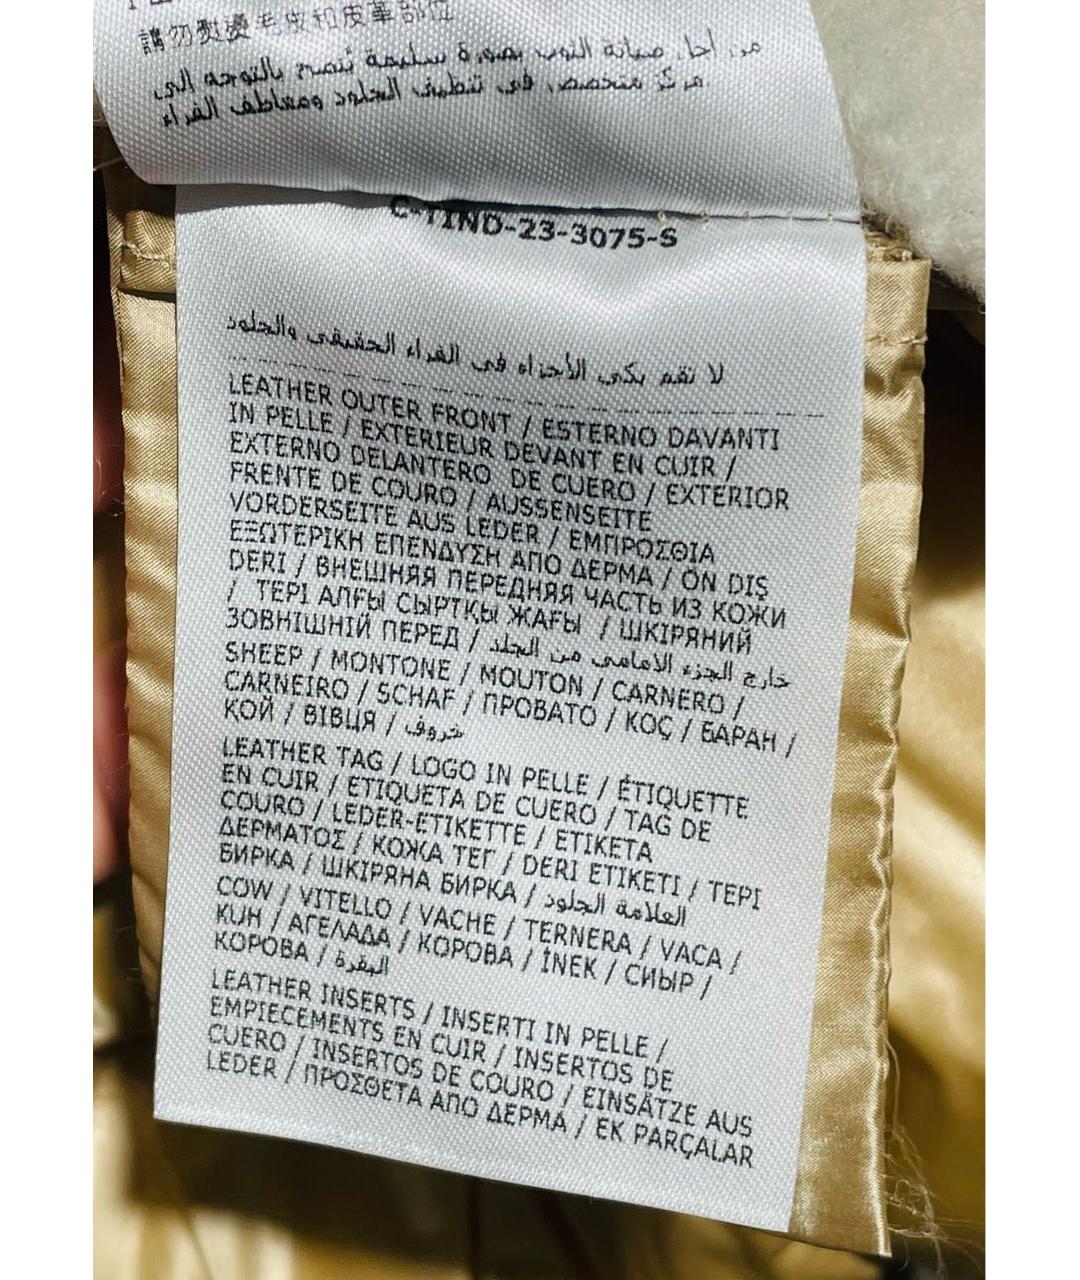 請勿熨燙毛皮和皮革部位
من أجل صيانة الثوب بصورة سليمة يُنصح بالتوجه إلى
مركز متخصص في تنظيف الجلود ومعاطف الفراء
C-TIND-23-3075-S
لا تقم بكي الأجزاء في الفراء الحقيقي والجلود
LEATHER OUTER FRONT / ESTERNO DAVANTI
IN PELLE / EXTERIEUR DEVANT EN CUIR /
EXTERNO DELANTERO DE CUERO / EXTERIOR
FRENTE DE COURO / AUSSENSEITE
VORDERSEITE AUS LEDER / ΕΜΠΡΟΣΘΙΑ
ΕΞΩΤΕΡΙΚΗ ΕΠΕΝΔΥΣΗ ΑΠΟ ΔΕΡΜΑ / ÖN DIŞ
DERI / ВНЕШНЯЯ ПЕРЕДНЯЯ ЧАСТЬ ИЗ КОЖИ
/ ТЕРІ АЛҒЫ СЫРТҚЫ ЖАҒЫ / ШКІРЯНИЙ
ЗОВНІШНІЙ ПЕРЕД / خارج الجزء الامامي من الجلد
SHEEP / MONTONE / MOUTON / CARNERO /
CARNEIRO / SCHAF / ΠΡΟΒΑΤΟ / KOÇ / БАРАН /
ҚОЙ / ВІВЦЯ / خروف
LEATHER TAG / LOGO IN PELLE / ÉTIQUETTE
EN CUIR / ETIQUETA DE CUERO / TAG DE
COURO / LEDER-ETIKETTE / ΕΤΙΚΕΤΑ
ΔΕΡΜΑΤΟΣ / КОЖА ТЕГ / DERI ETIKETI / ТЕРІ
БИРКА / ШКІРЯНА БИРКА / العلامة الجلود
COW / VITELLO / VACHE / TERNERA / VACA /
KUH / ΑΓΕΛΑΔΑ / КОРОВА / İNEK / СИЫР /
КОРОВА / البقرة
LEATHER INSERTS / INSERTI IN PELLE /
EMPIECEMENTS EN CUIR / INSERTOS DE
CUERO / INSERTOS DE COURO / EINSÄTZE AUS
LEDER / ΠΡΟΣΘΕΤΑ ΑΠΟ ΔΕΡΜΑ / EK PARÇALAR